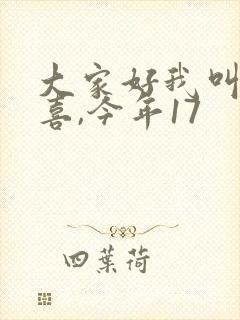 大家好我叫
喜,今年17
四葉荷